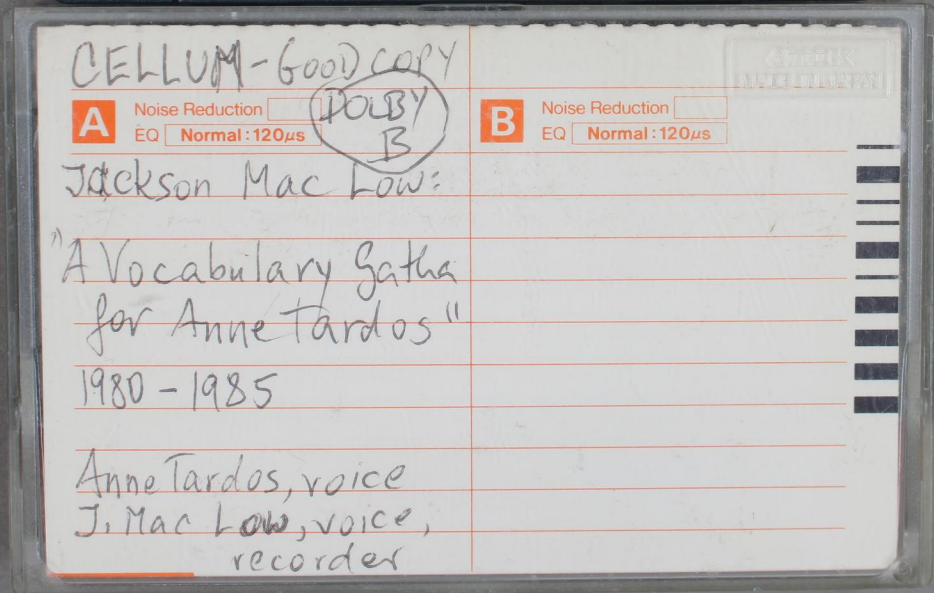 CELLUM - GOOD COPY
A Noise Reduction DOLBY B
EQ Normal : 120µs
B Noise Reduction
EQ Normal : 120µs
Jackson Mac Low:
"A Vocabulary Gatha
for Anne Tardos"
1980 - 1985
Anne Tardos, voice
J. Mac Low, voice,
recorder